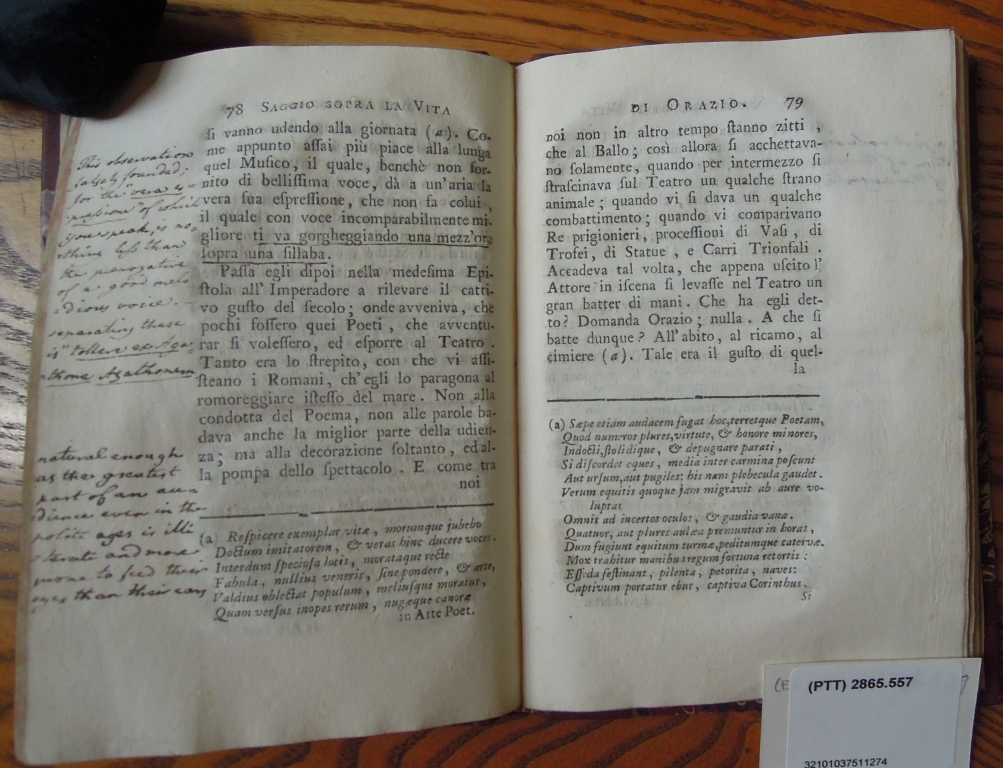 78 SAGGIO SOPRA LA VITA
ſi vanno udendo alla giornata (a). Co-
me appunto aſſai più piace alla lunga
quel Muſico, il quale, benchè non for-
nito di belliſſima voce, dà a un'aria la
vera ſua eſpreſſione, che non fa colui,
il quale con voce incomparabilmente mi-
gliore ti va gorgheggiando una mezz'ora
ſopra una ſillaba.
Paſſa egli dipoi nella medeſima Epi-
ſtola all' Imperadore a rilevare il catti-
vo guſto del ſecolo; onde avveniva, che
pochi foſſero quei Poeti, che avventu-
rar ſi voleſſero, ed eſporre al Teatro.
Tanto era lo ſtrepito, con che vi aſſi-
ſteano i Romani, ch'egli lo paragona al
romoreggiare iſteſſo del mare. Non alla
condotta del Poema, non alle parole ba-
dava anche la miglior parte della udien-
za; ma alla decorazione ſoltanto, ed al-
la pompa dello ſpettacolo. E come tra
noi
(a) Reſpicere exemplar vitæ, morumque jubebo
Doctum imitatorem, & veras hinc ducere voces.
Interdum ſpecioſa locis, morataque recte
Fabula, nullius veneris, ſine pondere, & arte,
Valdius oblectat populum, meliuſque moratur,
Quam verſus inopes rerum, nugæque canoræ
in Arte Poet.
This observation
falsely founded;
for the "vera es-
pressione" of which
you speak, is no-
thing less than
the prerogative
of a good melo
dious voice. —
separating these
is "tollere ex Aga-
thone Agathonem
natural enough
as the greatest
part of an au-
dience even in the
polite ages is illi
terate and more
prone to feed their
eyes than their ears
DI ORAZIO. 79
noi non in altro tempo ſtanno zitti,
che al Ballo; così allora ſi acchettava-
no ſolamente, quando per intermezzo ſi
ſtraſcinava ſul Teatro un qualche ſtrano
animale; quando vi ſi dava un qualche
combattimento; quando vi comparivano
Re prigionieri, proceſſioni di Vaſi, di
Trofei, di Statue, e Carri Trionfali.
Accadeva tal volta, che appena uſcito l'
Attore in iſcena ſi levaſſe nel Teatro un
gran batter di mani. Che ha egli det-
to? Domanda Orazio; nulla. A che ſi
batte dunque? All'abito, al ricamo, al
cimiere (a). Tale era il guſto di quel-
la
(a) Sæpe etiam audacem fugat hoc, terretque Poetam,
Quod numeros plures, virtute, & honore minores,
Indocti, ſtolidique, & depugnare parati,
Si diſcordet eques, media inter carmina poſcunt
Aut urſum, aut pugiles: his nam plebecula gaudet.
Verum equitis quoque jam migravit ab aure vo-
luptas
Omnis ad incertos oculos, & gaudia vana.
Quatuor, aut plures aulæa premuntur in horas,
Dum fugiunt equitum turmæ, peditumque catervæ.
Mox trahitur manibus regum fortuna retortis:
Eſſeda feſtinant, pilenta, petorita, naves:
Captivum portatur ebur, captiva Corinthus.
Si
(PTT) 2865.557
32101037511274